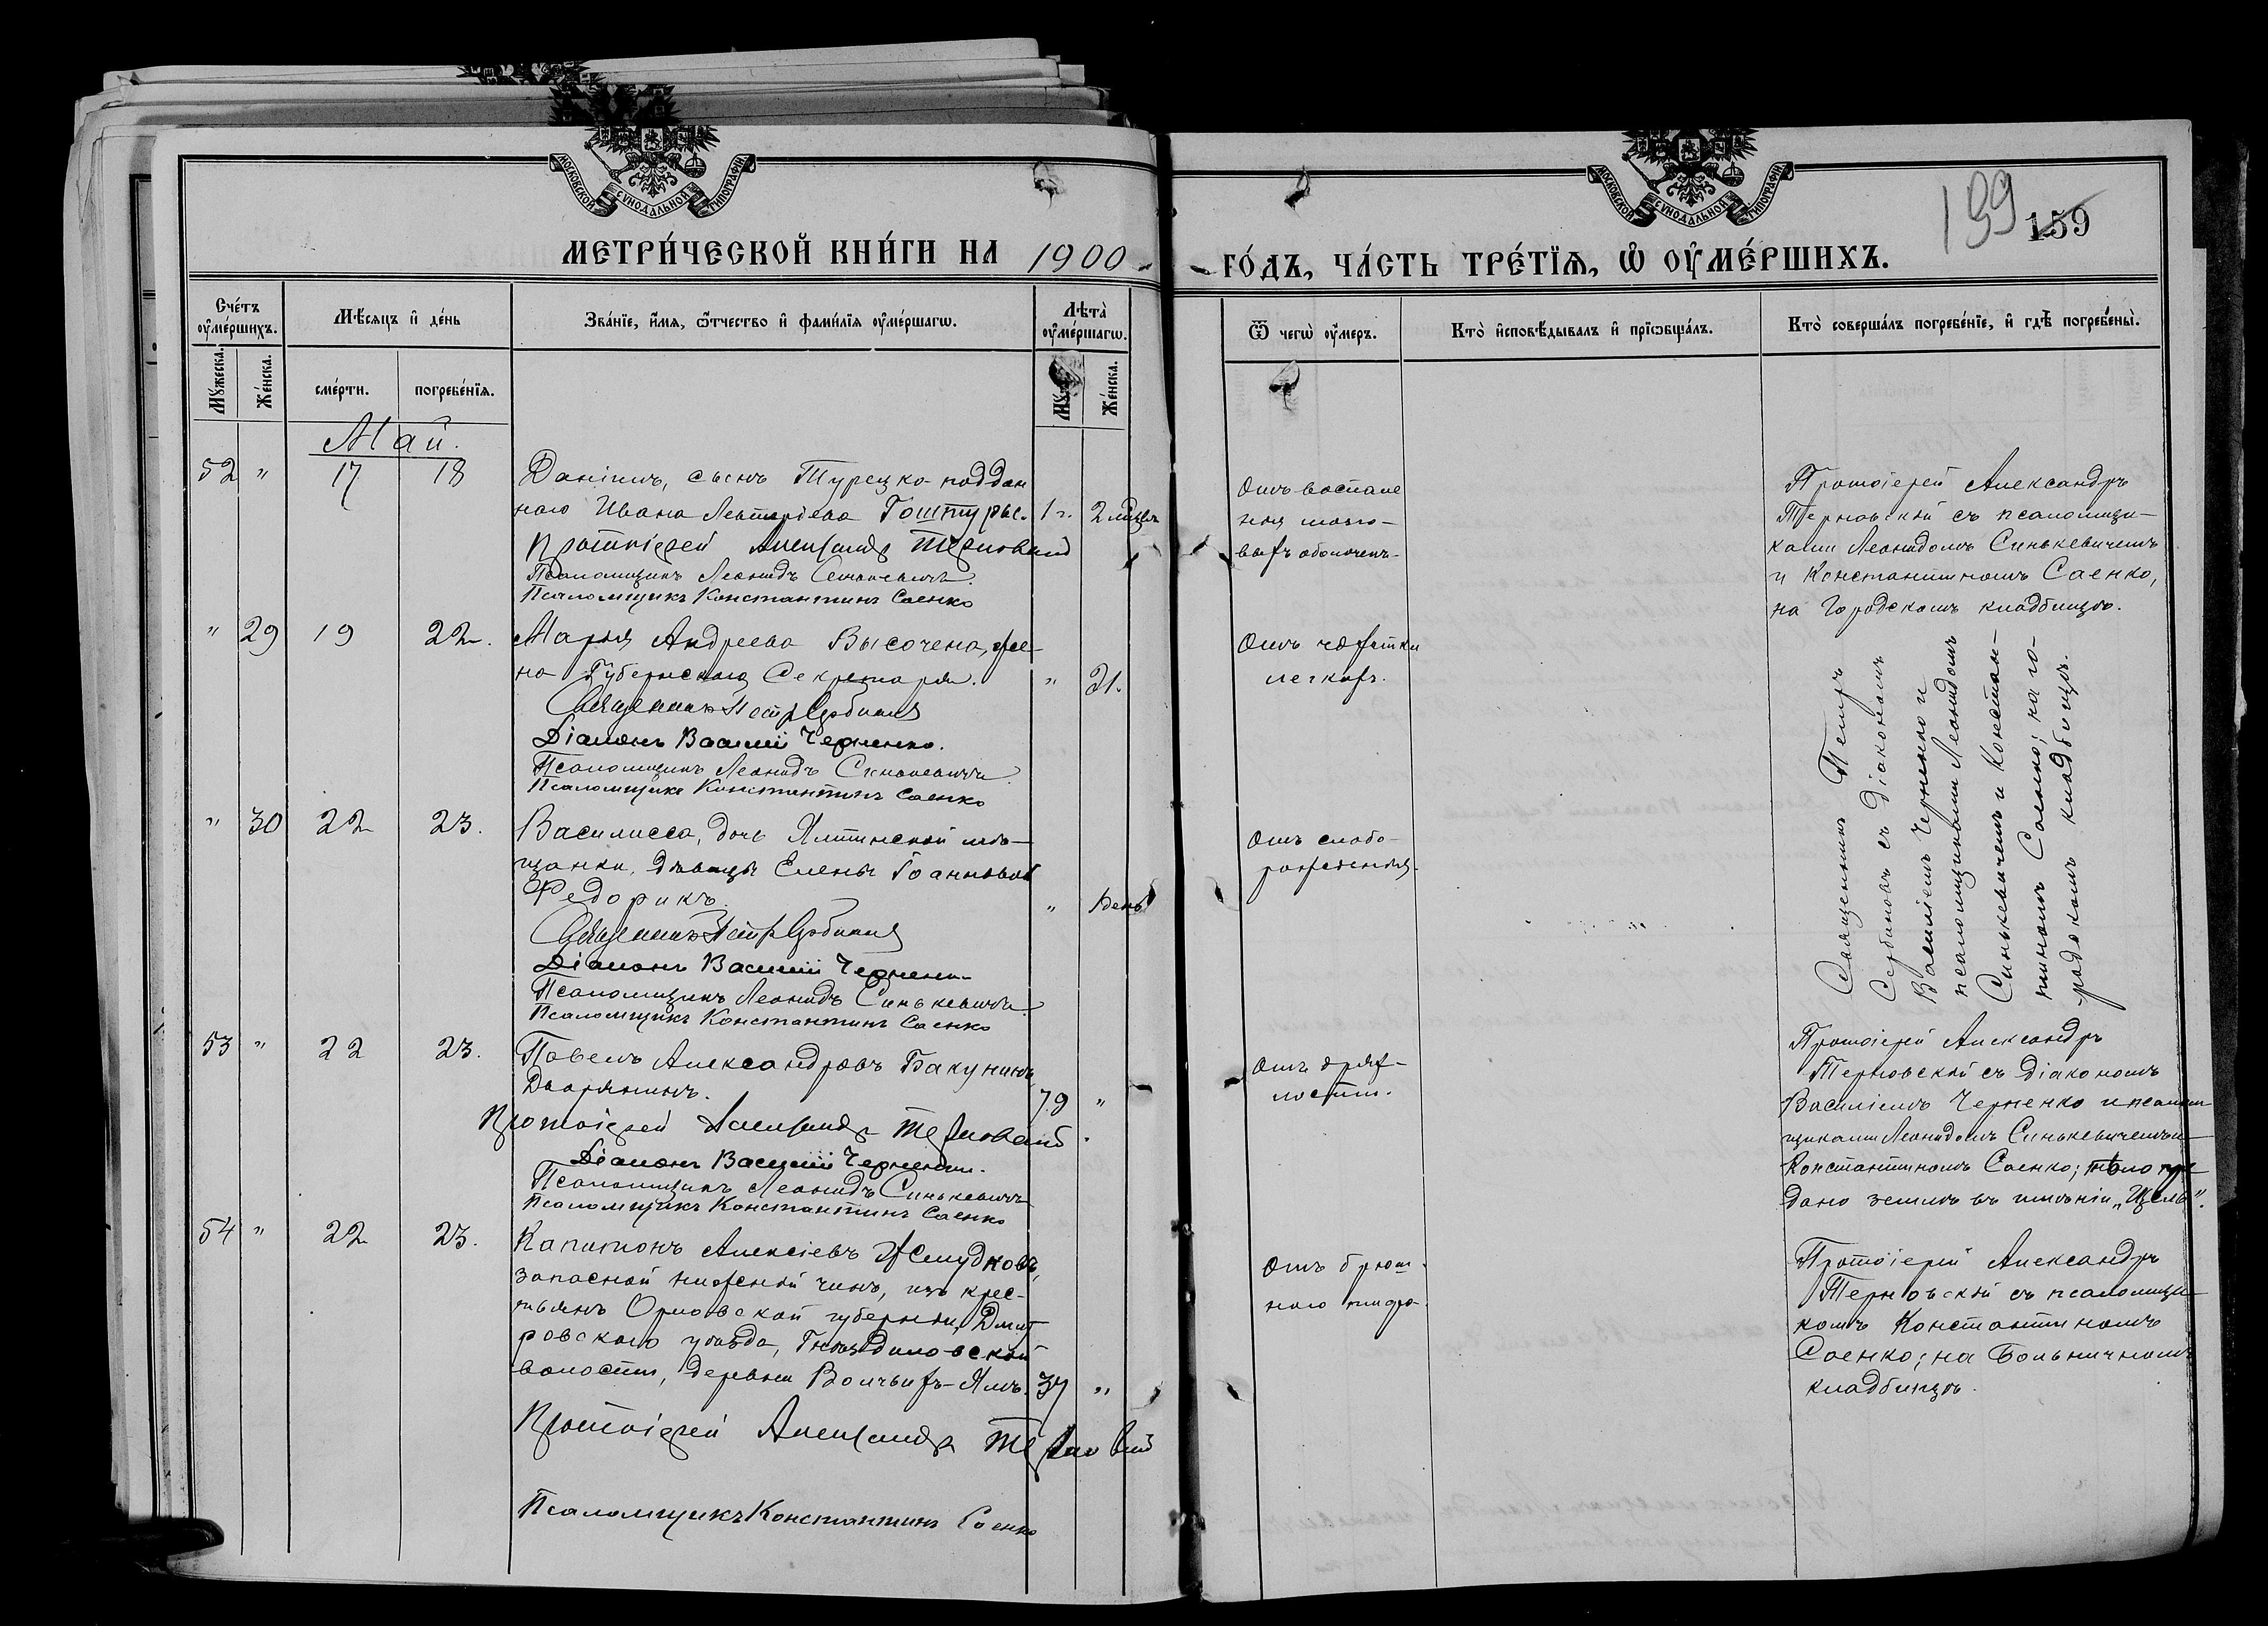 МОСКОВСКОЙ СѴНОДАЛЬНОЙ ТИПОГРАФІИ
МОСКОВСКОЙ СѴНОДАЛЬНОЙ ТИПОГРАФІИ
199
159
МЕТРИ́ЧЕСКОЙ КНИ́ГИ НА 1900
ГО́ДЪ, ЧА́СТЬ ТРЕ́ТЇѦ, Ѡ҆ ОУ҆МЕ́РШИХЪ.
Сче́тъ оу҆ме́ршихъ.
Мꙋ́жеска.
Же́нска.
Мѣ́сяцъ и҆ де́нь
сме́рти.
погребе́нїѧ.
Зва́нїе, и҆́мѧ, ѻ҆́тчество и҆ фами́лїѧ оу҆ме́ршагѡ.
Лѣ́та оу҆ме́ршагѡ.
Же́нска.
Ѿ чегѡ̀ оу҆́меръ.
Кто̀ и҆сповѣ́дывалъ и҆ прїѡбща́лъ.
Кто̀ соверша́лъ погребе́нїе, и҆ гдѣ̀ погребе́ны.
Май.
52 " 17 18
Даніилъ, сынъ Турецко-поддан
наго Ивана Лефтеріева 1 г. 2 мѣсяц.
Протоіерей Александръ Терновскій
Псаломщикъ Леонидъ Синькевичъ
Псаломщикъ Константинъ Саенко
Отъ воспале
нія мозго-
выхъ оболочекъ
Протоіерей Александръ
Терновскій съ псаломщи-
ками Леонидомъ Синькевичемъ
и Константиномъ Саенко,
на Городскомъ кладбищѣ.
" 29 19 22.
Марія Андреева Высочена, же-
на Губернскаго Секретаря. " 21.
Священникъ Петръ Сербиновъ
Діаконъ Василій Черненко.
Псаломщикъ Леонидъ Синькевичъ
Псаломщикъ Константинъ Саенко
Отъ чахотки
легкихъ.
Священникъ Петръ
Сербиновъ съ діакономъ
Василіемъ Черненко и
псаломщиками Леонидомъ
Синькевичемъ и Констан-
тиномъ Саенко; на го-
родскомъ кладбищѣ.
" 30 22 23.
Василисса, дочь Ялтинской мѣ-
щанки, дѣвицы Елены Іоанновой
Федорикъ. " 1 день
Священникъ Петръ Сербиновъ
Діаконъ Василій Черненко
Псаломщикъ Леонидъ Синькевичъ
Псаломщикъ Константинъ Саенко
Отъ слабо-
рожденія.
53 " 22 23.
Павелъ Александровъ Бакунинъ
Дворянинъ. 79 "
Протоіерей Александръ Терновскій
Діаконъ Василій Черненко.
Псаломщикъ Леонидъ Синькевичъ
Псаломщикъ Константинъ Саенко
Отъ дрях-
лости.
Протоіерей Александръ
Терновскій съ діакономъ
Василіемъ Черненко и псалом
щиками Леонидомъ Синькевичемъ и
Константиномъ Саенко; тѣло пре
дано землѣ въ имѣніи
54 " 22 23.
Капитонъ Алексіевъ Жмудковъ,
запасной нижній чинъ, изъ крес-
тьянъ Орловской губерніи, Дмит
ровскаго уѣзда, Гнѣздиловской
волости, деревни Волчьихъ-Ямъ. 37 "
Протоіерей Александръ Терновскій
Псаломщикъ Константинъ Саенко
Отъ брюш-
ного тифа.
Протоіерей Александръ
Терновскій съ псаломщи-
комъ Константиномъ
Саенко; на Больничномъ
кладбищѣ.